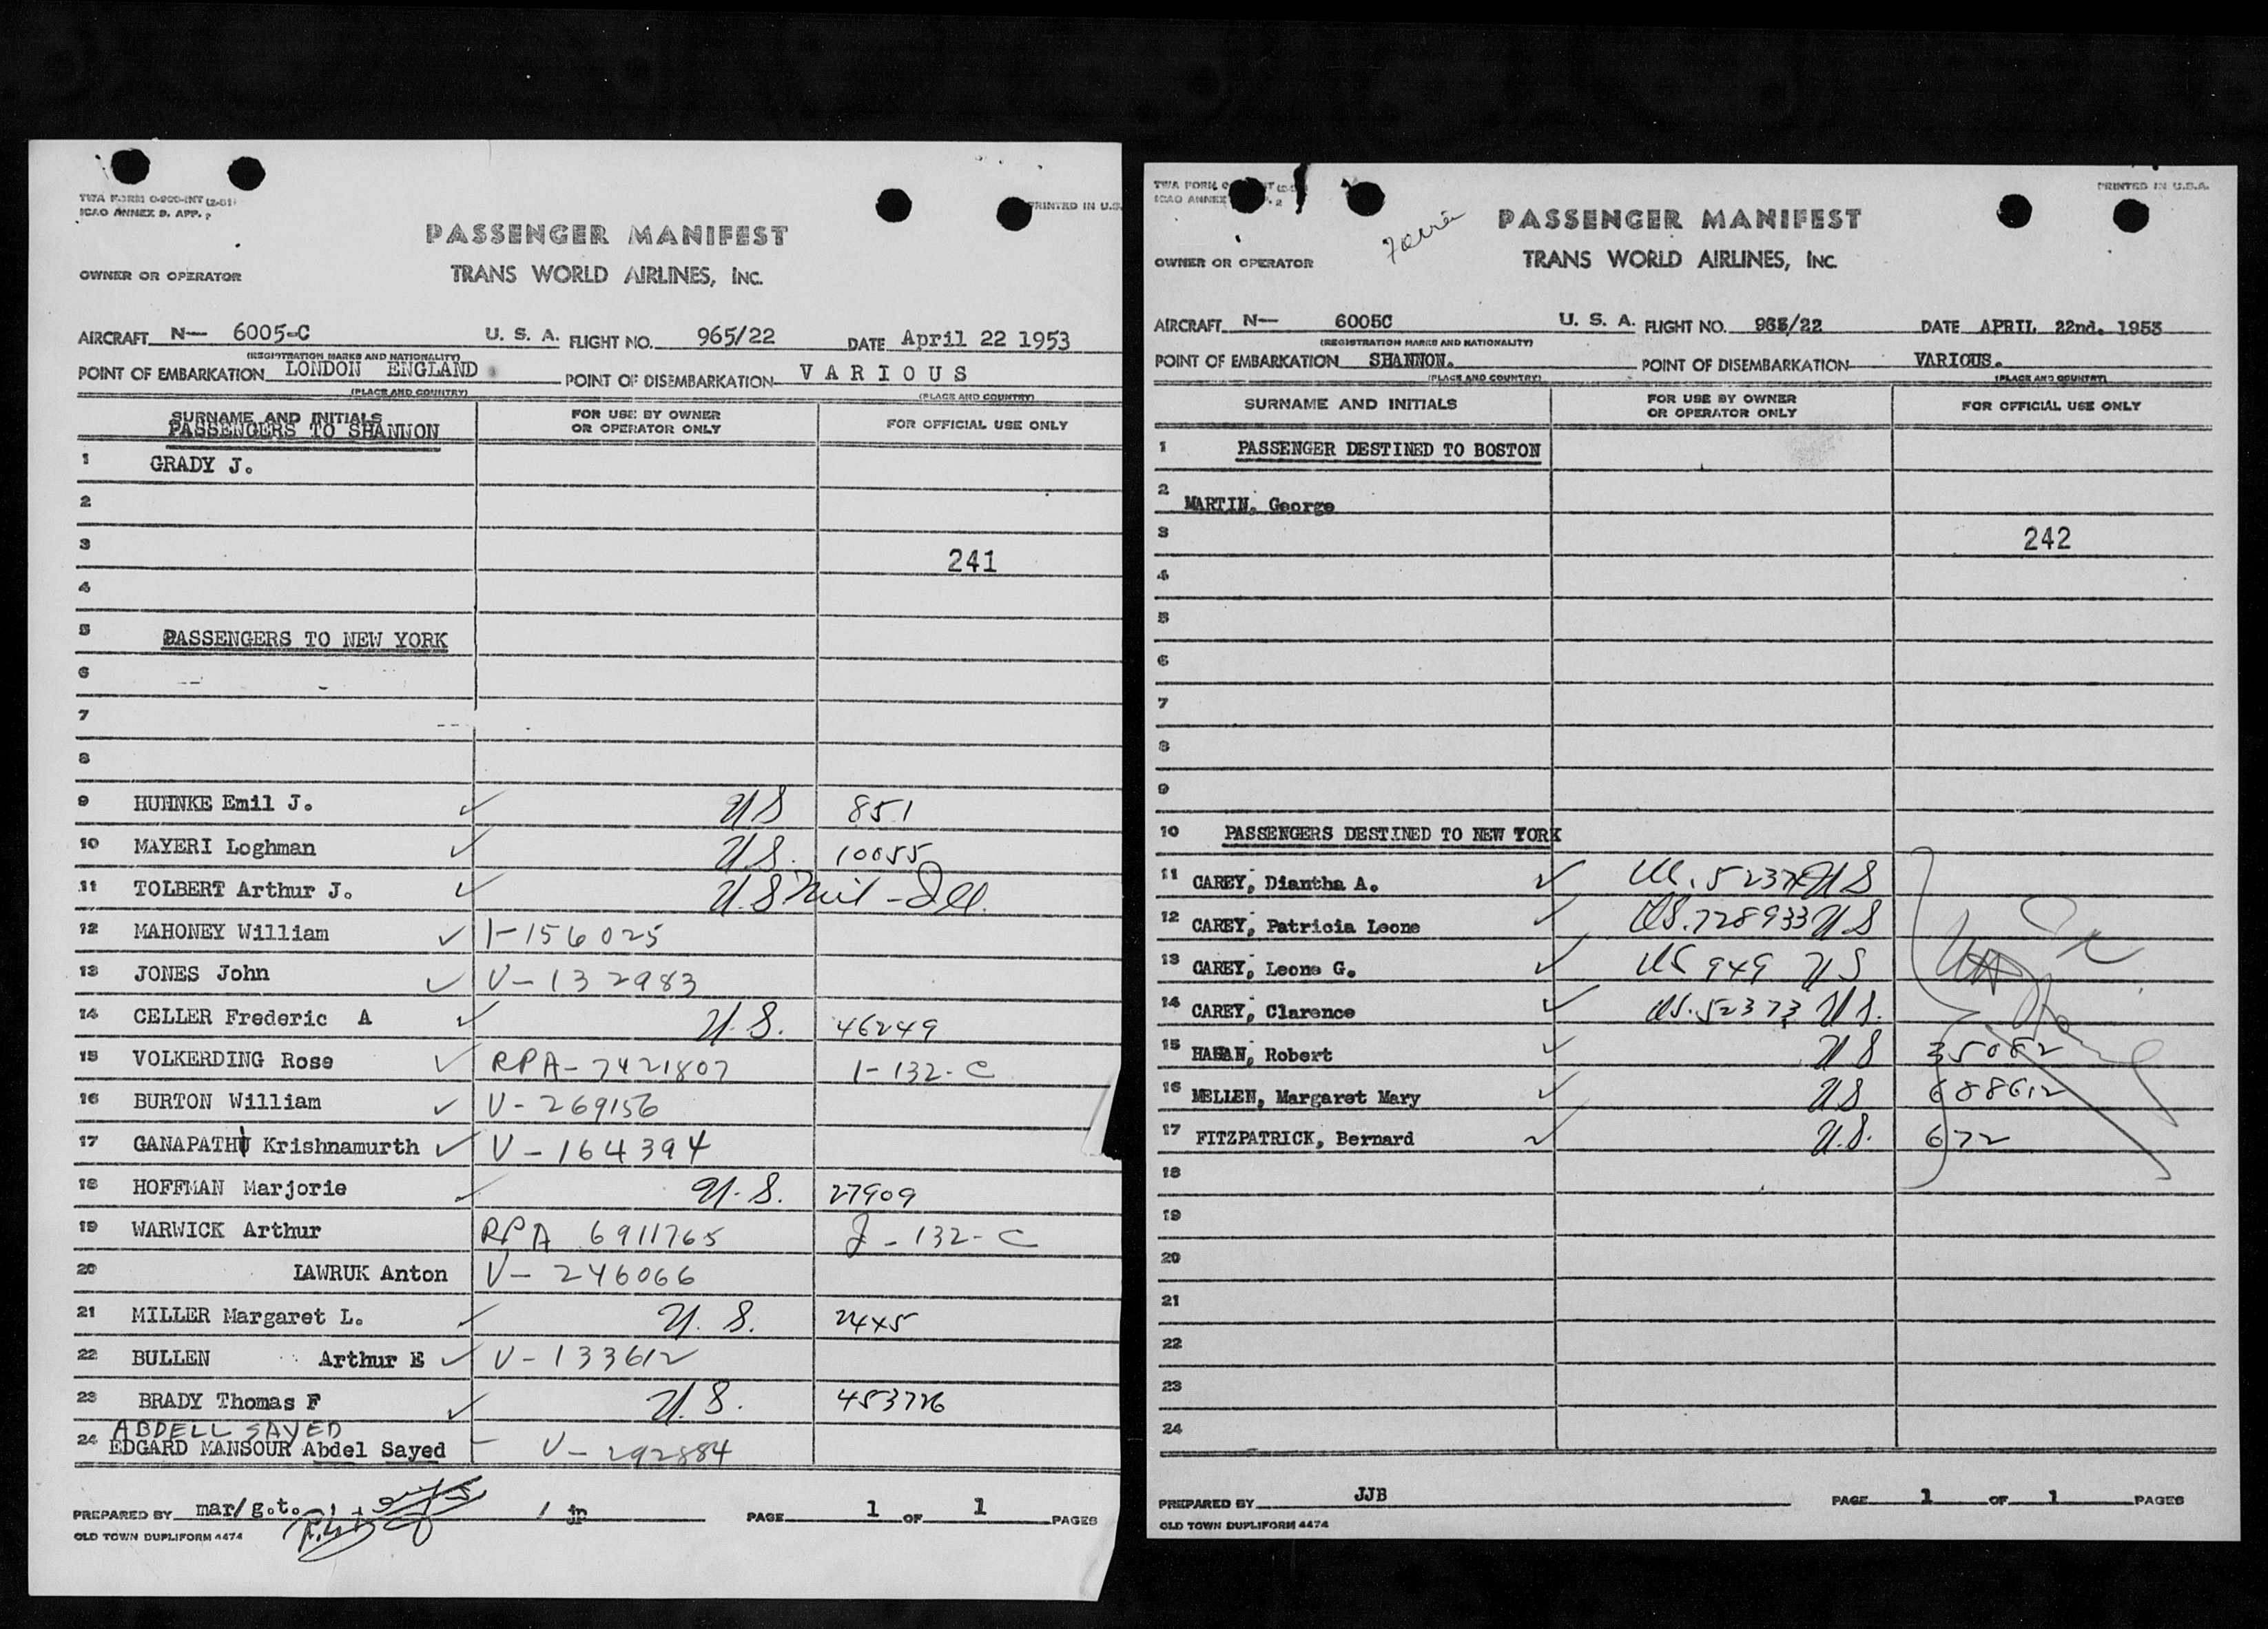 TWA FORM O-900-INT (2-51)
ICAO ANNEX 9, APP. 2
PRINTED IN U.S.
PASSENGER MANIFEST
OWNER OR OPERATOR
TRANS WORLD AIRLINES, INC.
AIRCRAFT N— 6005-C U. S. A. FLIGHT NO. 965/22 DATE April 22 1953
(REGISTRATION MARKS AND NATIONALITY)
POINT OF EMBARKATION LONDON ENGLAND POINT OF DISEMBARKATION V A R I O U S
(PLACE AND COUNTRY) (PLACE AND COUNTRY)
SURNAME AND INITIALS FOR USE BY OWNER OR OPERATOR ONLY FOR OFFICIAL USE ONLY
PASSENGERS TO SHANNON
1 GRADY J.
2
3 241
4
5 PASSENGERS TO NEW YORK
6
7
8
9 HUHNKE Emil J. ✓ US 851
10 MAYERI Loghman ✓ U.S. 10055
11 TOLBERT Arthur J. ✓ U.S
12 MAHONEY William ✓ I-156025
13 JONES John ✓ V-132983
14 CELLER Frederic A ✓ U.S. 46249
15 VOLKERDING Rose ✓ RPA-7421807 1-132-C
16 BURTON William ✓ V-269156
17 GANAPATHI Krishnamurth ✓ V-164394
18 HOFFMAN Marjorie ✓ U.S. 27909
19 WARWICK Arthur RPA 6911765 - 132-C
20 LAWRUK Anton V-246066
21 MILLER Margaret L. ✓ U.S. 2445
22 BULLEN Arthur E ✓ V-133612
23 BRADY Thomas F ✓ U.S. 453726
ABDELL SAYED
24 EDGARD MANSOUR Abdel Sayed V-292884
PREPARED BY mar/g.t. / jp PAGE 1 OF 1 PAGES
OLD TOWN DUPLIFORM 4474
TWA FORM
ICAO ANNEX
PRINTED IN U.S.A.
PASSENGER MANIFEST
OWNER OR OPERATOR
TRANS WORLD AIRLINES, INC.
AIRCRAFT N— 6005C U. S. A. FLIGHT NO. 965/22 DATE APRIL 22nd. 1953
(REGISTRATION MARKS AND NATIONALITY)
POINT OF EMBARKATION SHANNON. POINT OF DISEMBARKATION VARIOUS.
(PLACE AND COUNTRY) (PLACE AND COUNTRY)
SURNAME AND INITIALS FOR USE BY OWNER OR OPERATOR ONLY FOR OFFICIAL USE ONLY
1 PASSENGER DESTINED TO BOSTON
2 MARTIN. George
3 242
4
5
6
7
8
9
10 PASSENGERS DESTINED TO NEW YORK
11 CAREY, Diantha A. ✓ US
12 CAREY, Patricia Leone ✓ US.728933 US
13 CAREY, Leone G. ✓ US 949 US
14 CAREY, Clarence ✓ US.52373 US.
15 Robert ✓ US 35082
16 MELLEN, Margaret Mary ✓ US 688612
17 FITZPATRICK, Bernard ✓ U.S. 672
18
19
20
21
22
23
24
PREPARED BY JJB PAGE 1 OF 1 PAGES
OLD TOWN DUPLIFORM 4474